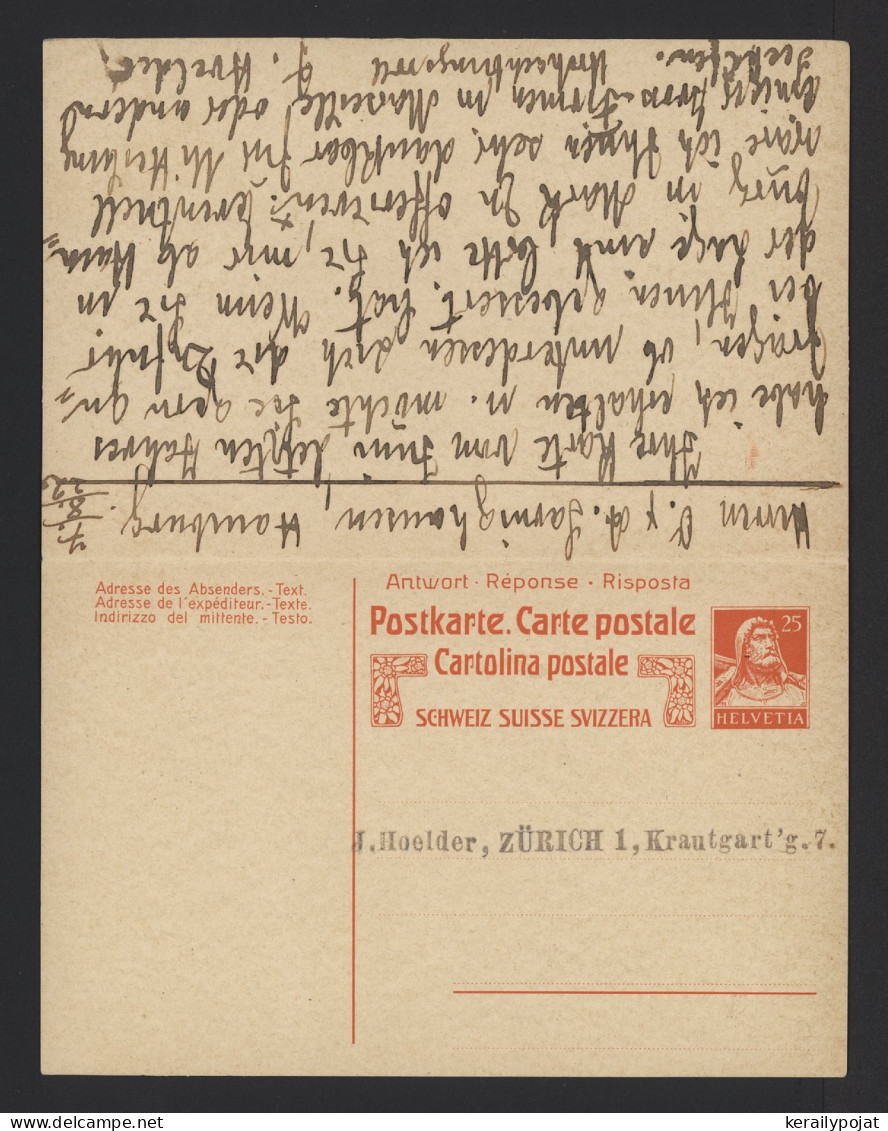 Herrn O. & A. Sarnighausen, Hamburg.
4/8.22
Ihre Karte vom Juni letzten Jahres
habe ich erhalten u. möchte Sie gern an„
fragen, ob unterdessen sich die Zufuhr
bei Ihnen gebessert hat. Wenn Sie in
der Lage sind, bitte ich Sie, mir ab Ham„
burg in Mark zu offerieren. Eventuell
wäre ich Ihnen sehr dankbar für Mitteilung
einiger Firmen in Marseille oder andern
Seehäfen. Hochachtungsvoll J. Hoelder.
Adresse des Absenders.-Text.
Adresse de l'expéditeur.-Texte.
Indirizzo del mittente.-Testo.
Antwort · Réponse · Risposta
Postkarte. Carte postale
Cartolina postale
SCHWEIZ SUISSE SVIZZERA
25
HELVETIA
J. Hoelder, ZÜRICH 1, Krautgart'g. 7.
www.kerailypojat.com